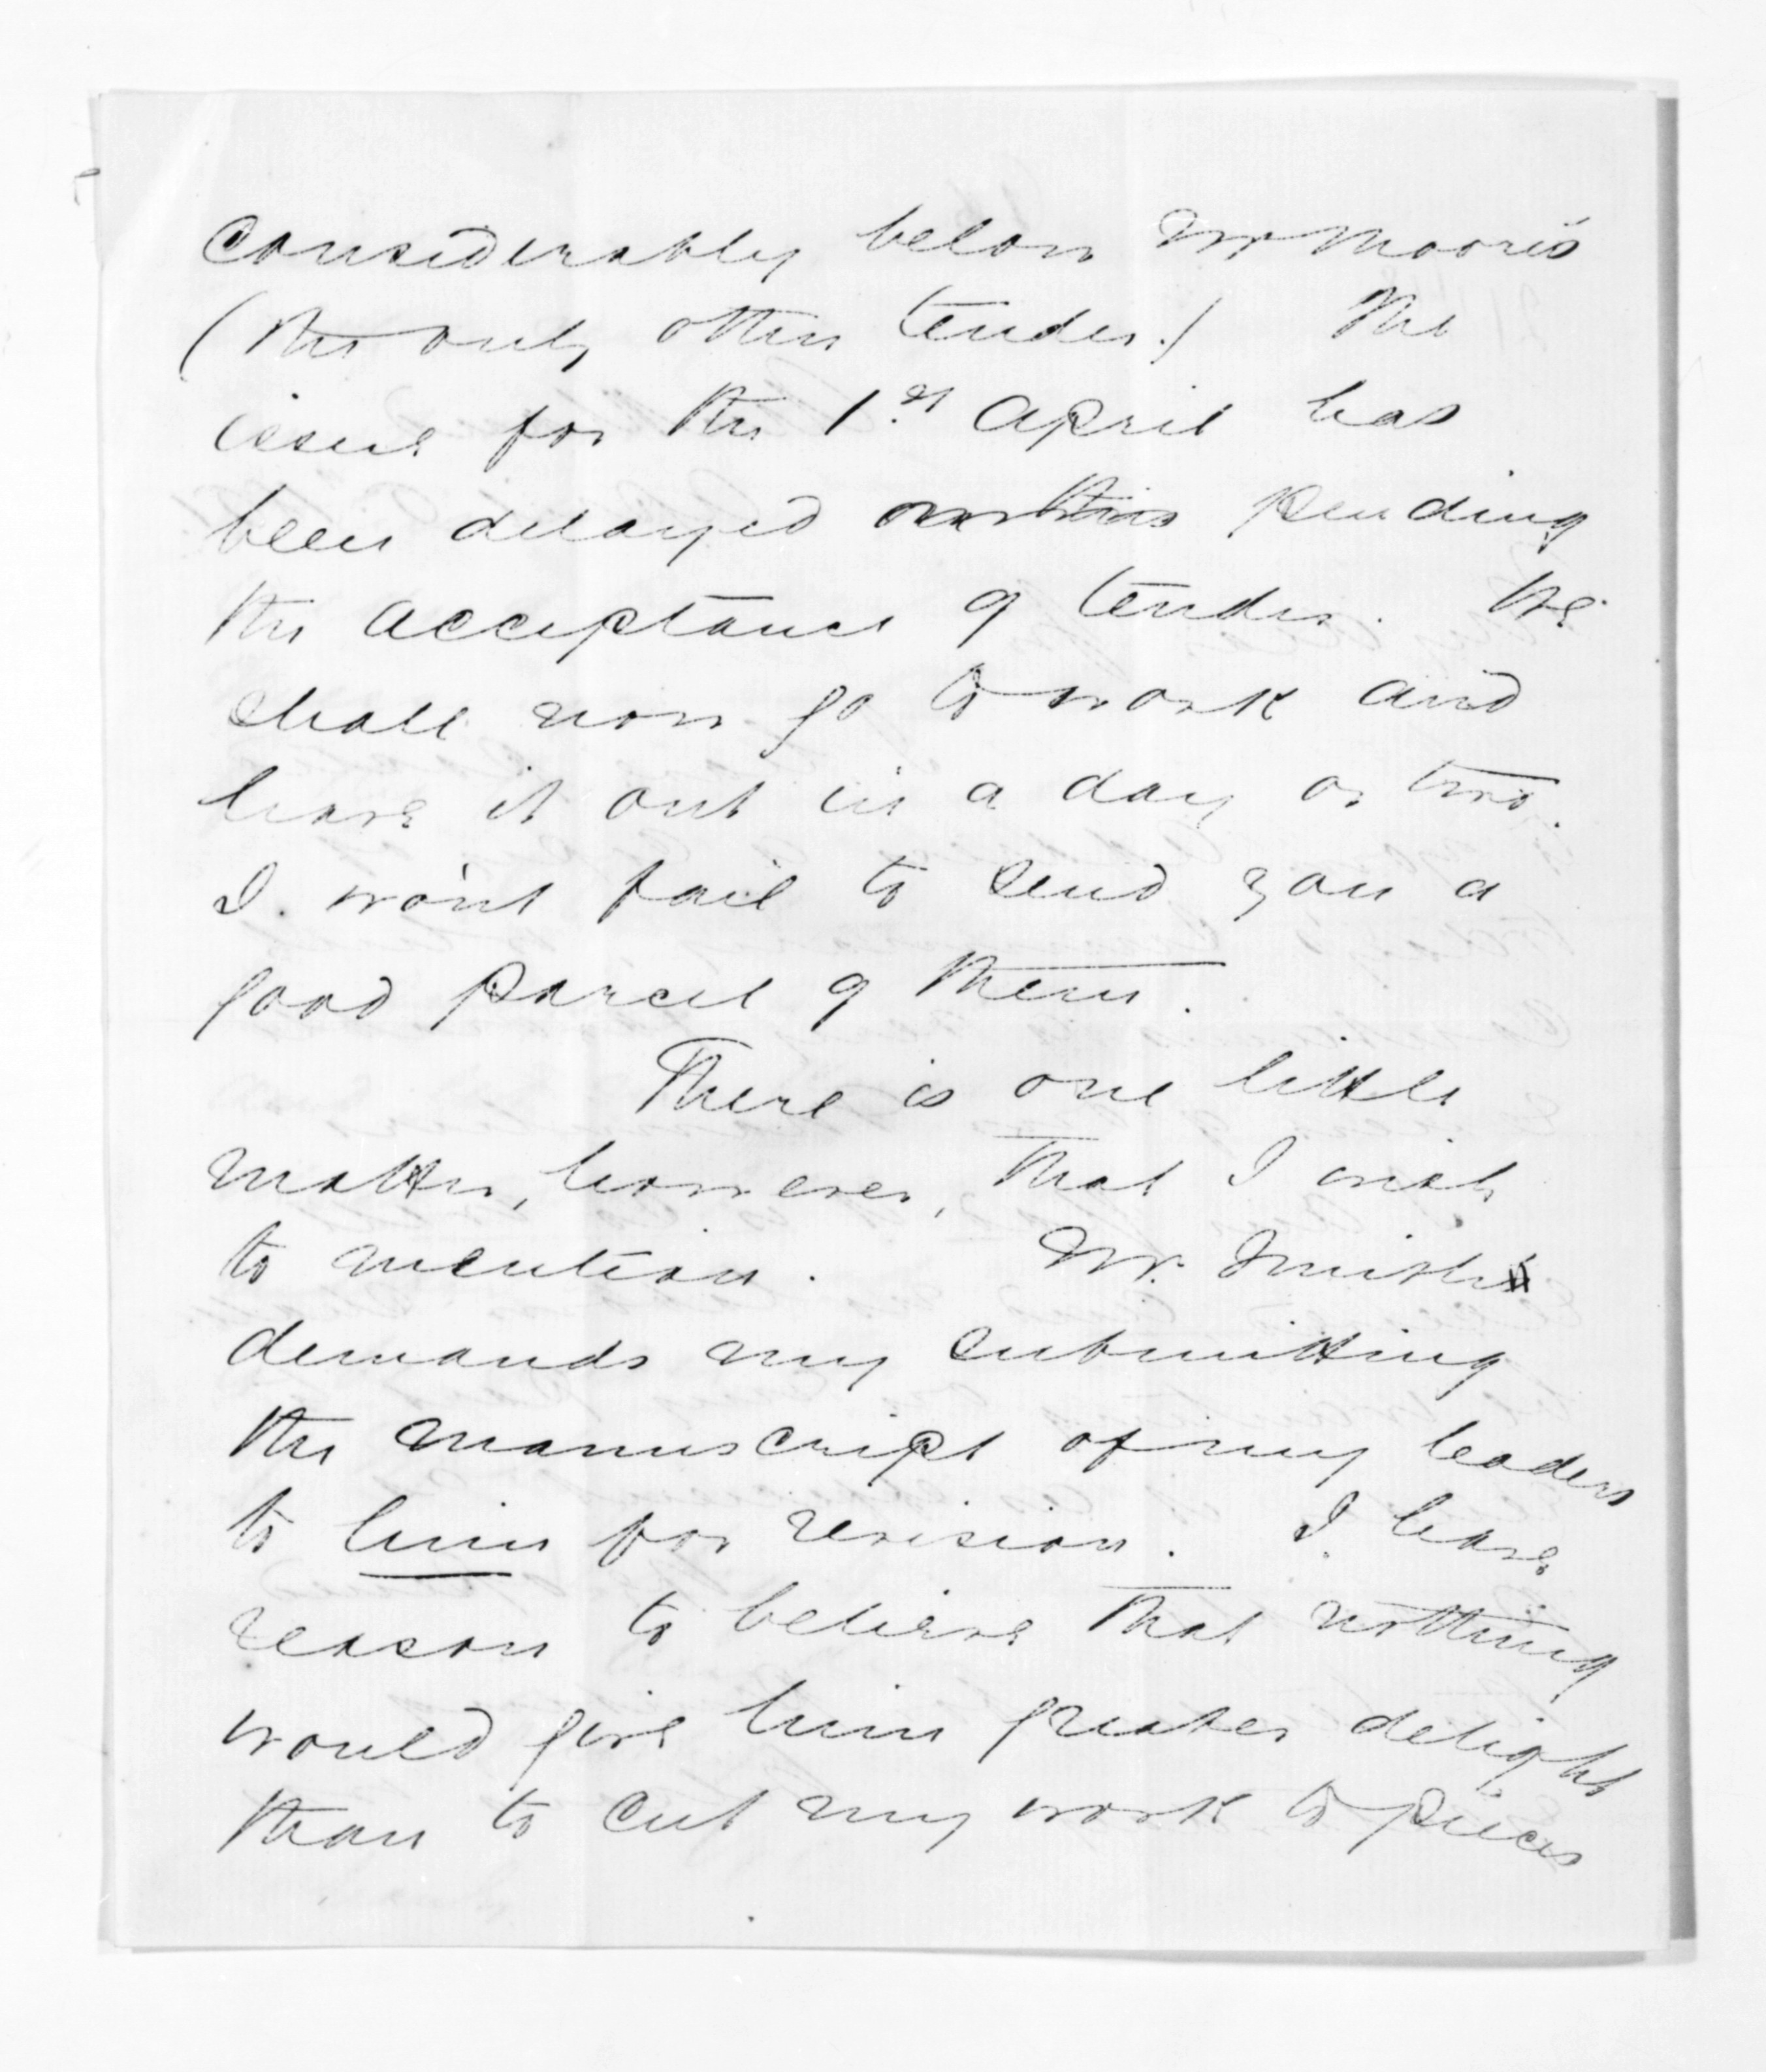 considerably below Mr Moore's
(the only other tender.) The
issue for the 1st April has
been delayed pending
the acceptance of tender. We
shall now go to work and
have it out in a day or two.
I wo'nt fail to send you a
good parcel of them.
There is one little
matter, however, that I wish
to mention. Mr. Smith
demands my submitting
the manuscript of my leaders
to him for revision. I have
reason to believe that nothing
would give him greater delight
than to cut my work to pieces